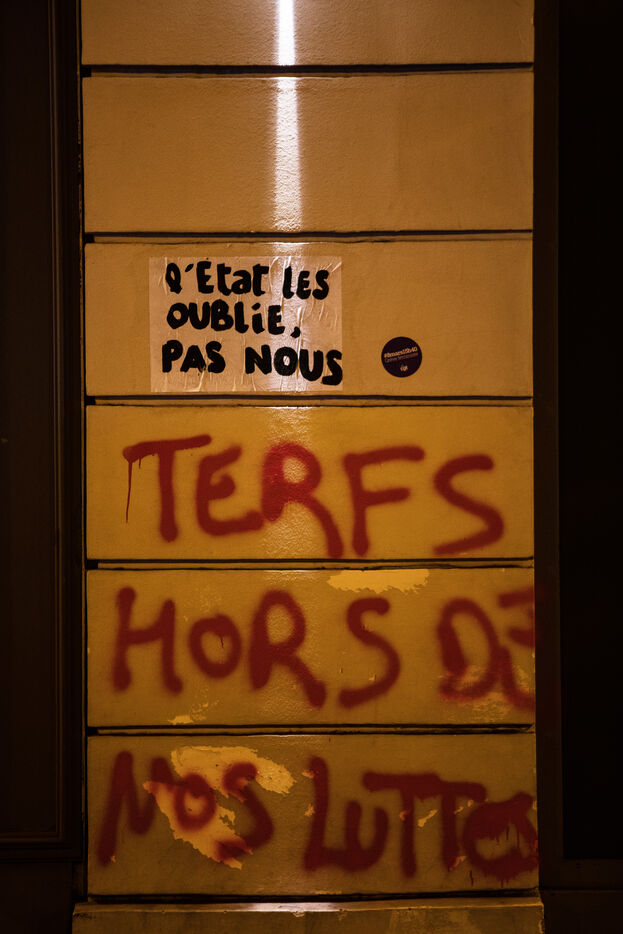 Q'État LES
OUBLIE,
PAS NOUS
#8mars15h40
TERFS
HORS DE
NOS LUTTES